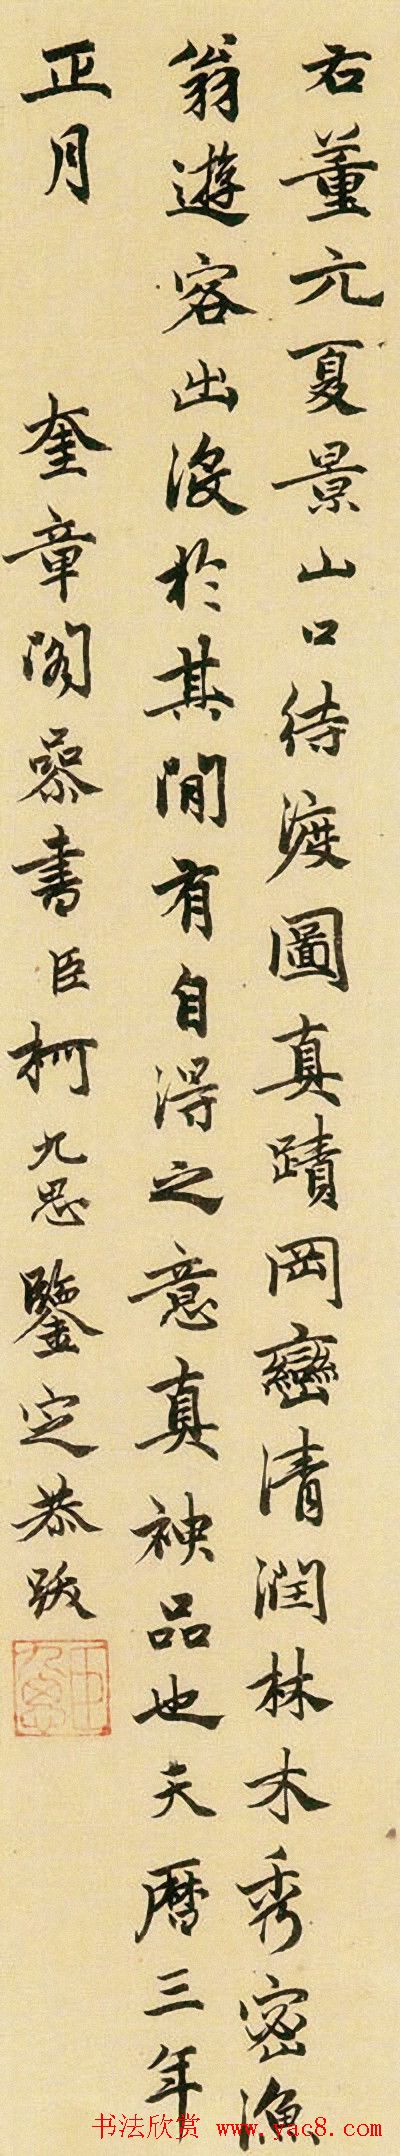 右董元夏景山口待渡圖真蹟岡巒清潤林木秀密漁
翁遊客出沒於其間有自得之意真神品也天曆三年
正月 奎章閣參書臣柯九思鑒定恭跋
书法欣赏 www.yac8.com